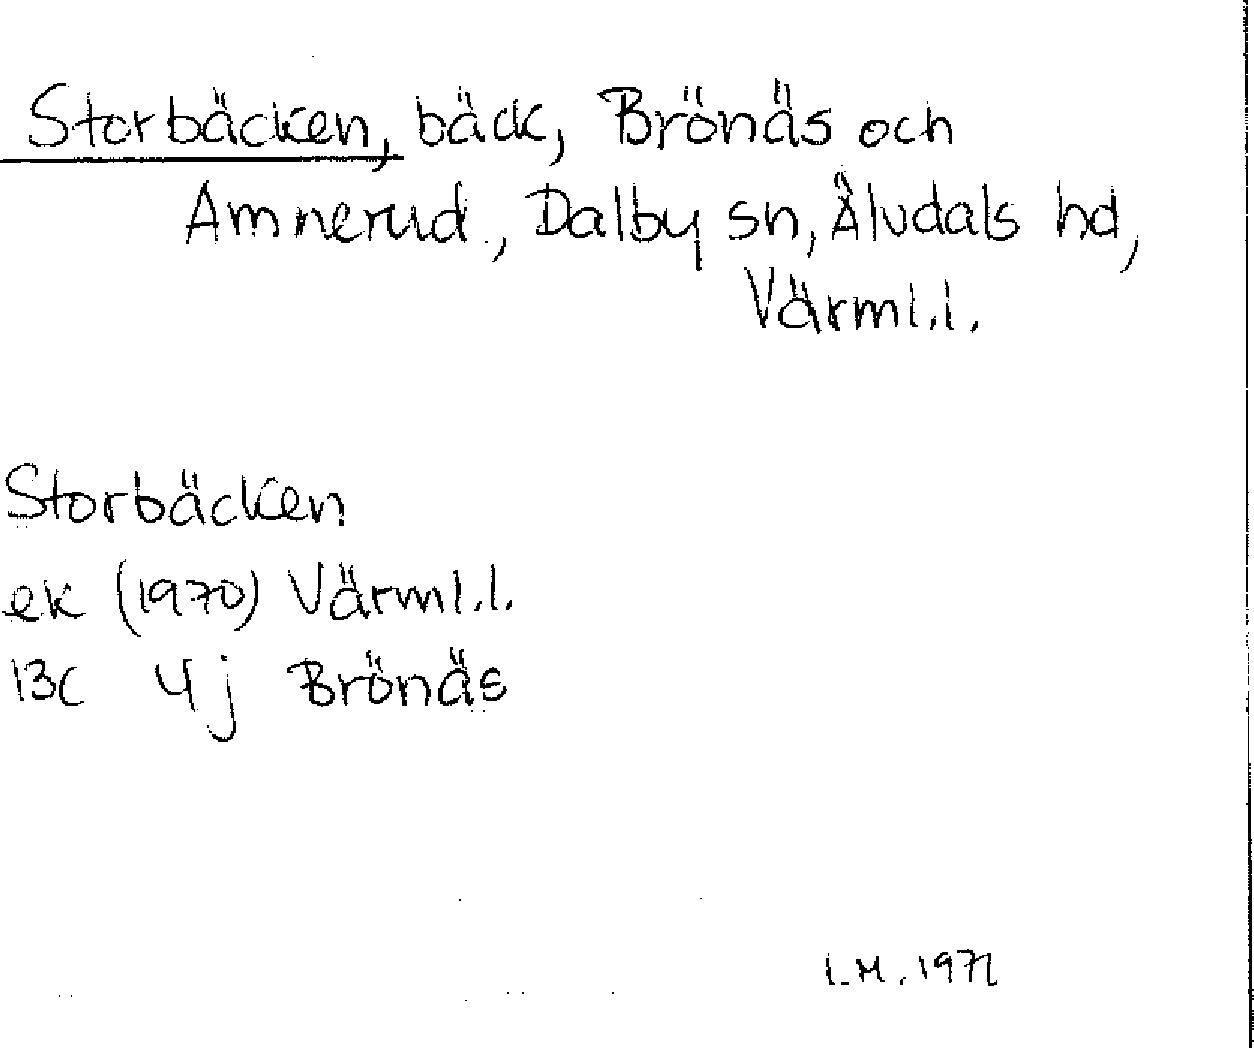 Storbäcken, bäck, Brönäs och
Amnerud., Dalby sn, Älvdals hd,
Värml.l.
Storbäcken
ek (1970) Värml.l.
13C 4j Brönäs
I.M. 1972